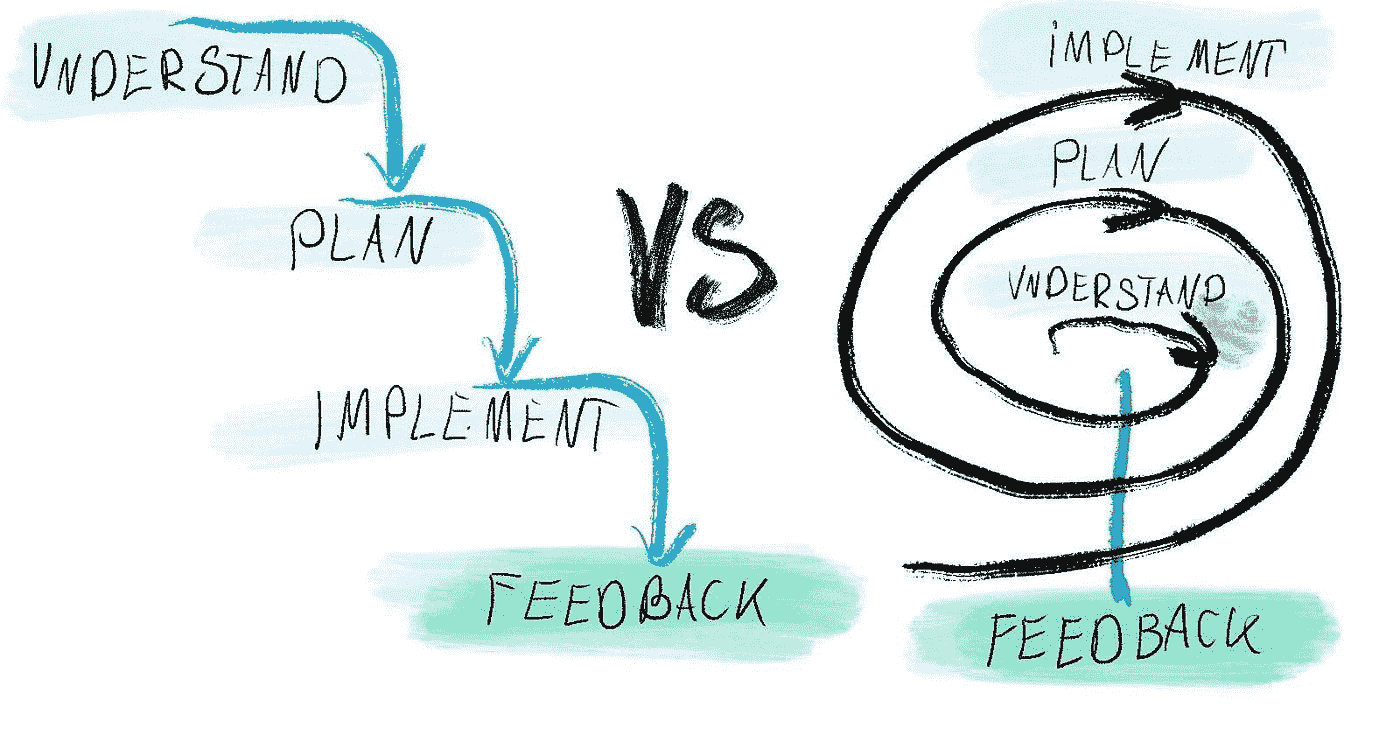 UNDERSTAND
PLAN
IMPLEMENT
FEEDBACK
VS
IMPLEMENT
PLAN
UNDERSTAND
FEEDBACK